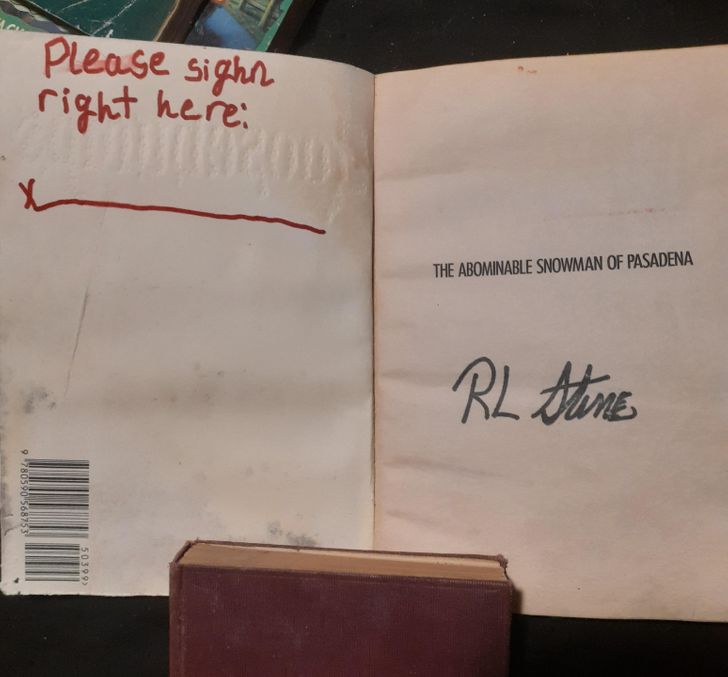 Please sighn
right here:
X
THE ABOMINABLE SNOWMAN OF PASADENA
RL Stine
9 780590 568753
50399>